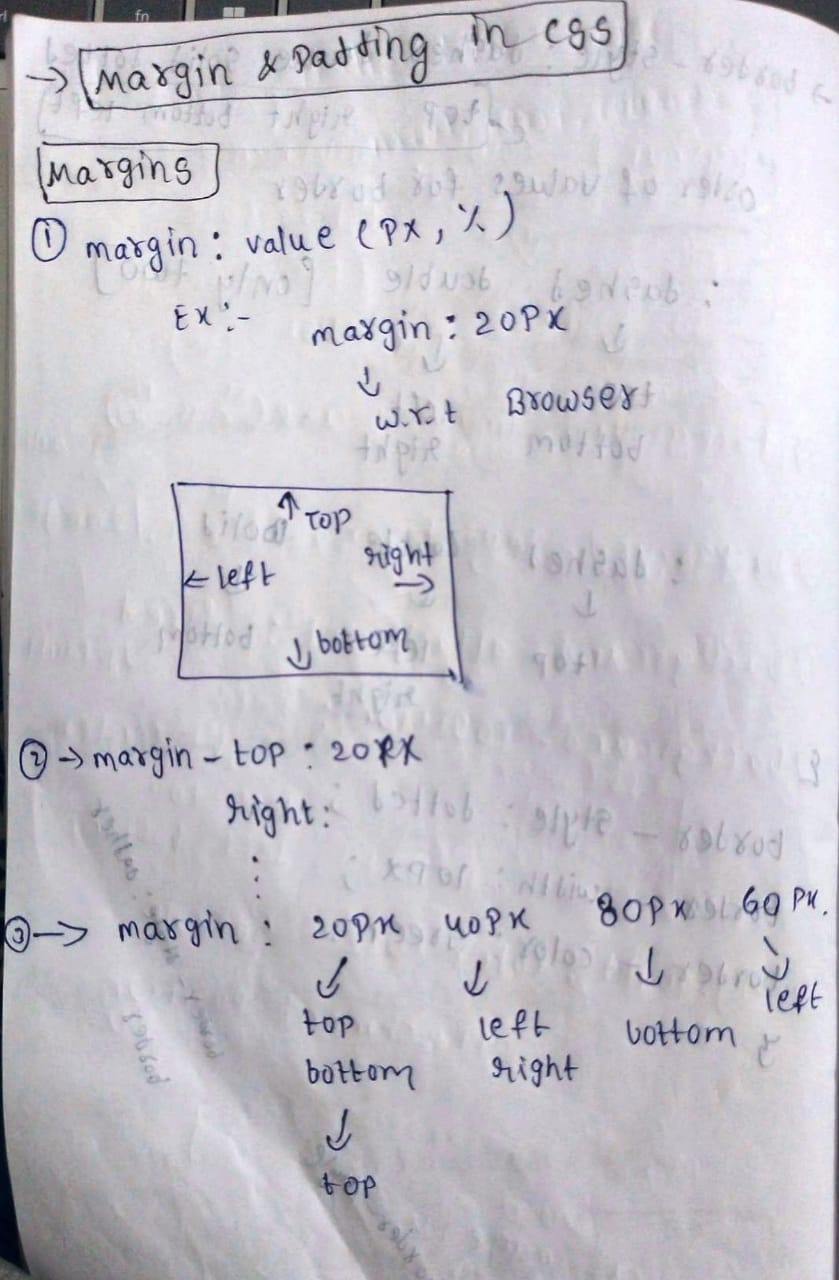 → Margin & Padding in CSS
Margins
① margin: value (PX, %)
Ex:- margin: 20PX
↓
w.r.t Browser
↑ Top
right →
← left
↓ bottom
② → margin - top: 20PX
right:
③ → margin: 20PX 40PX 80PX 60PX.
↓ ↓ ↓ ↓
top left bottom left
bottom right
↓
top